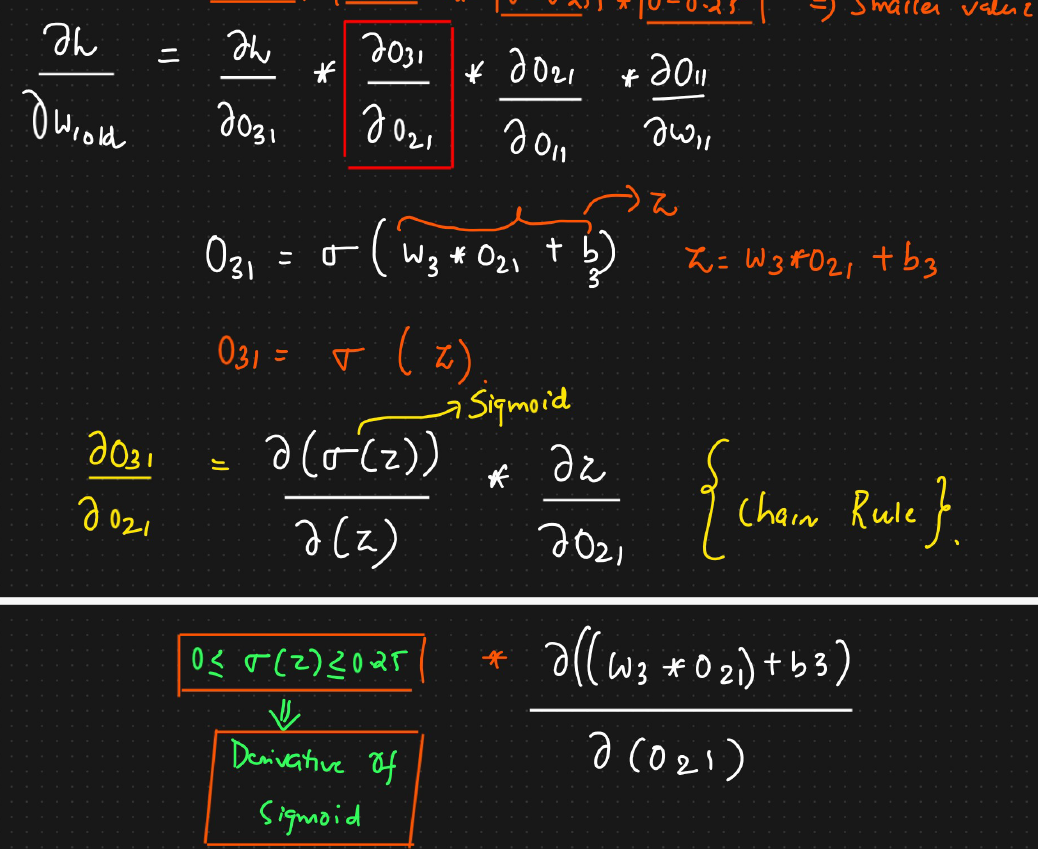 =) Smaller value
∂h/∂w₁old = ∂h/∂O₃₁ * ∂O₃₁/∂O₂₁ * ∂O₂₁/∂O₁₁ * ∂O₁₁/∂w₁₁
→ z
O₃₁ = σ(w₃ * O₂₁ + b₃) z = w₃*O₂₁ + b₃
O₃₁ = σ(z).
→ Sigmoid
∂O₃₁/∂O₂₁ = ∂(σ(z))/∂(z) * ∂z/∂O₂₁ {Chain Rule}.
0 ≤ σ(z) ≤ 0.25 * ∂((w₃ * O₂₁) + b₃)/∂(O₂₁)
⇓
Derivative of
Sigmoid